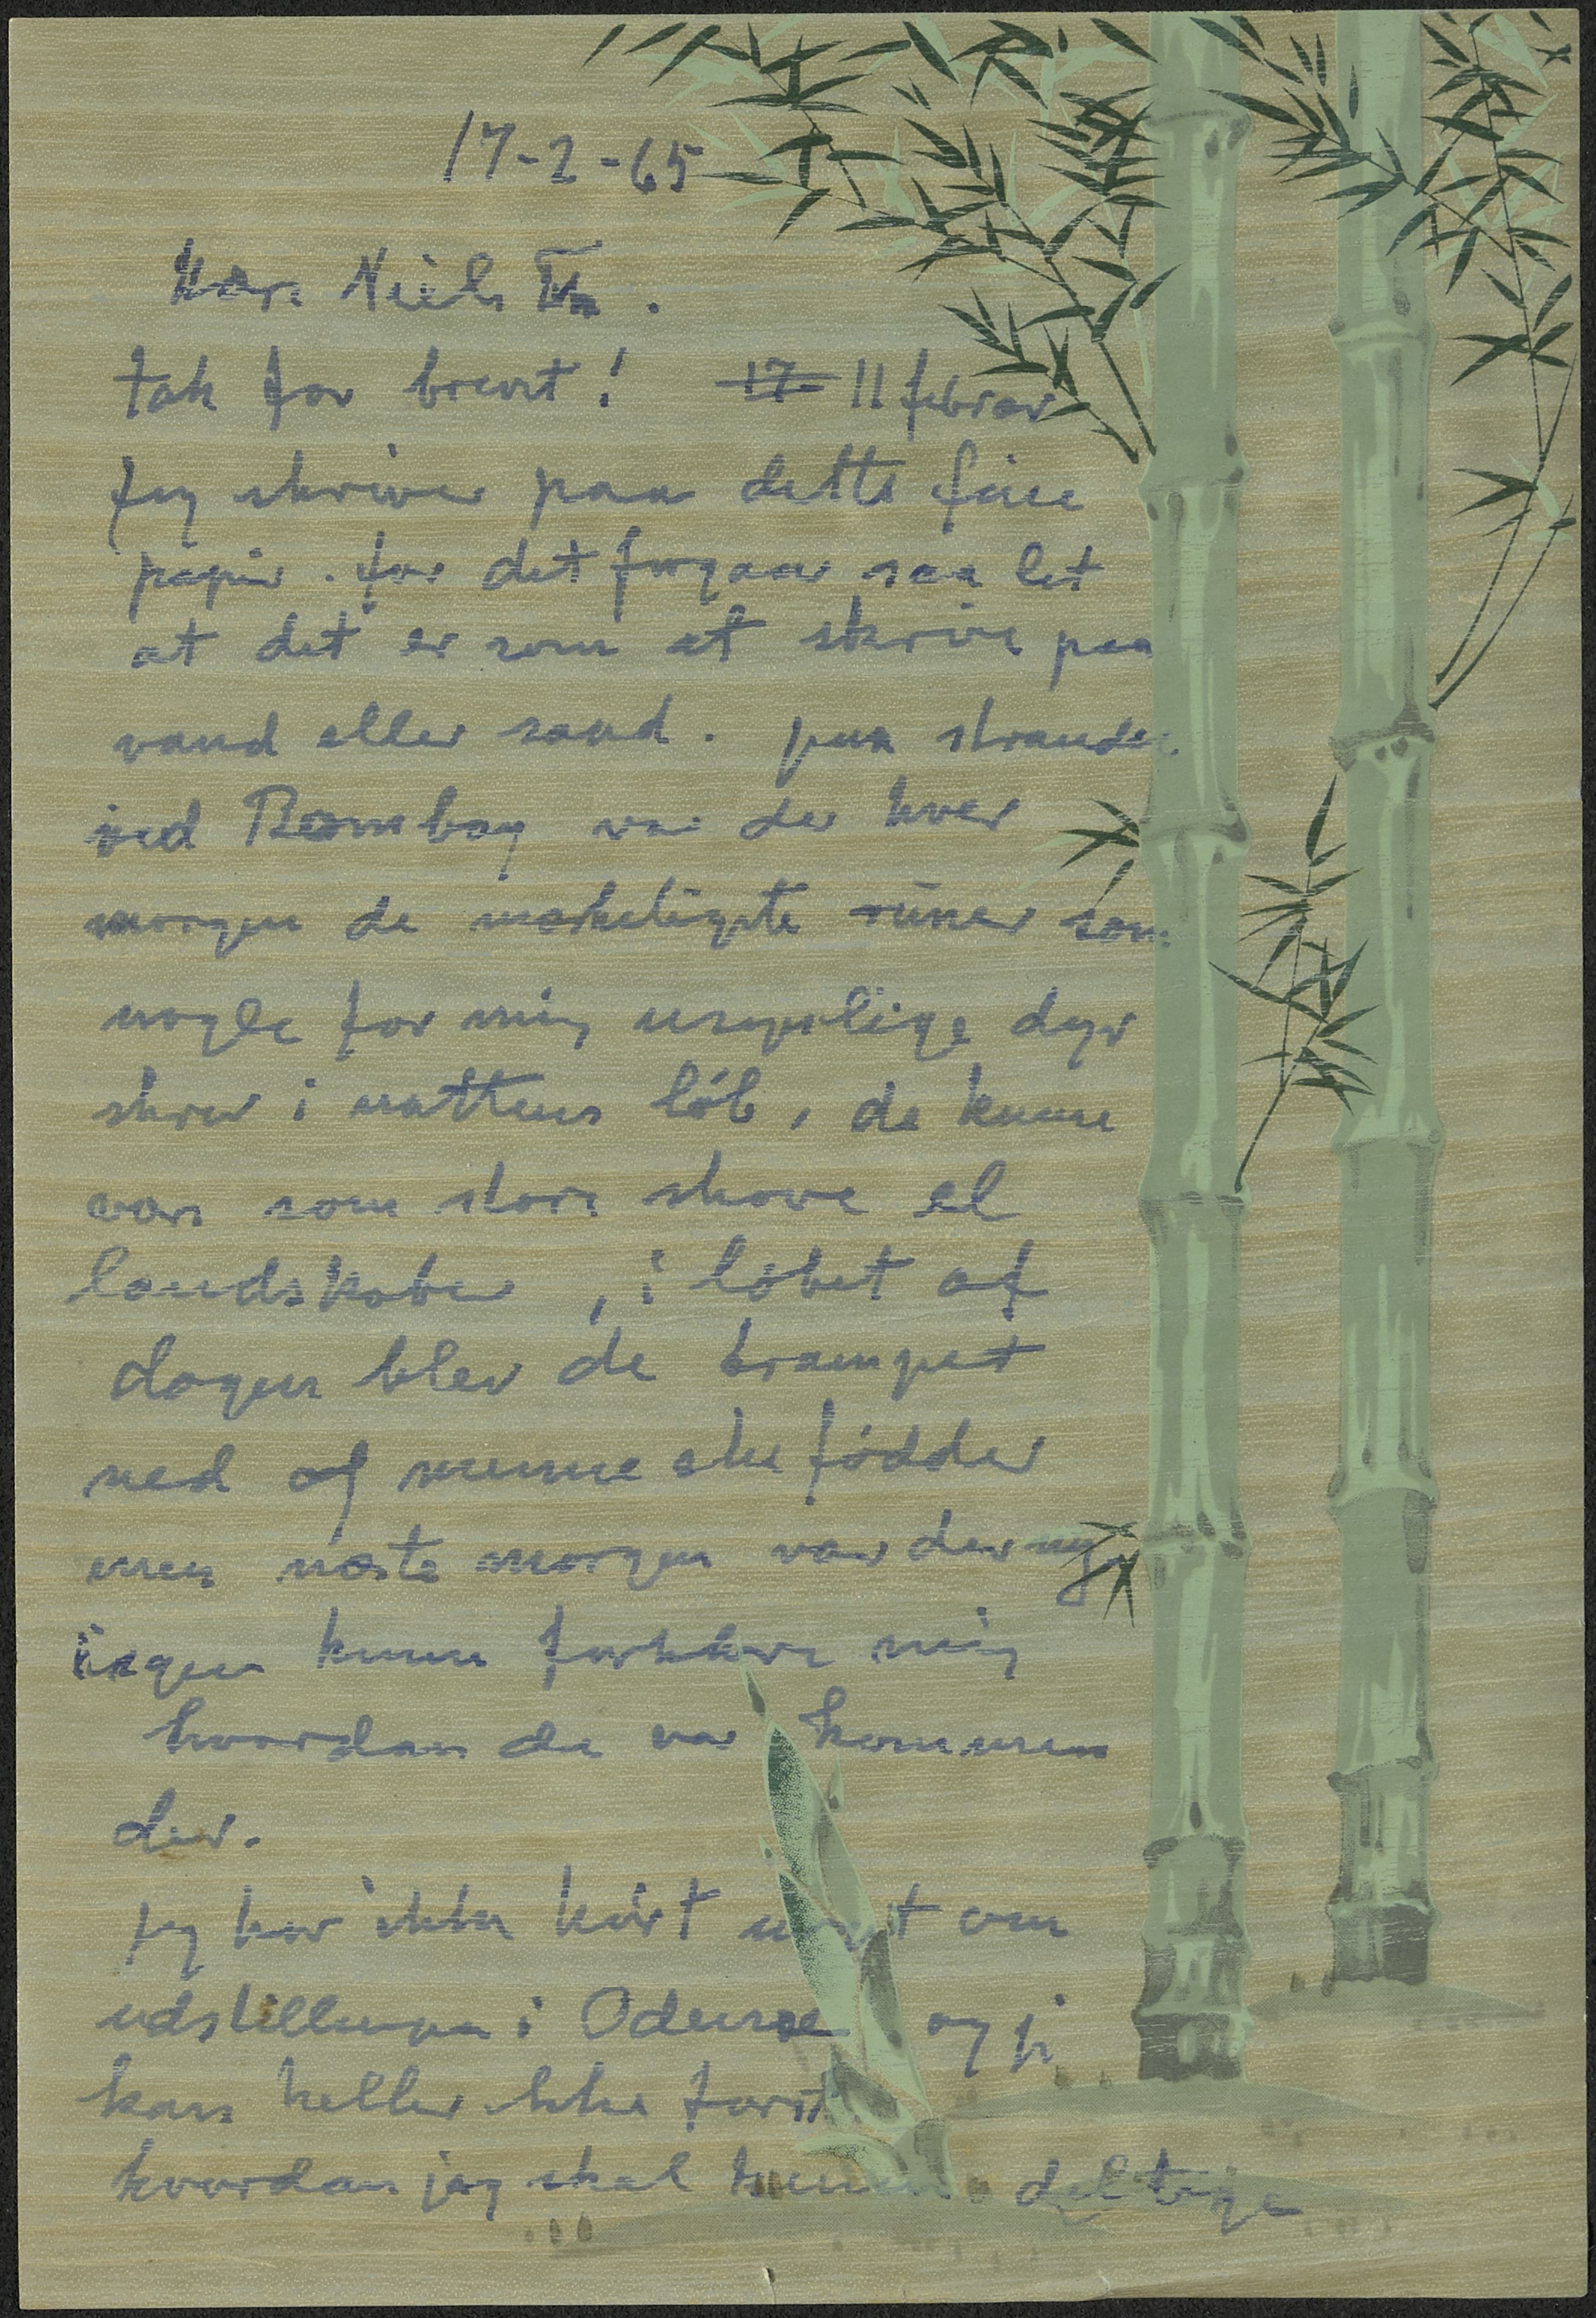 17-2-65
Kære Niels Th.
tak for brevet! 17 11 februar
Jeg skriver paa dette fine
papir. for det forgaar saa let
at det er som at skrive paa
vand eller sand. paa stranden
ved Bombay var der hver
morgen de mærkeligste runer som
nogle for mig usynlige dyr
skrev i nattens løb, de kunne
være som store skove el
landskaber, i løbet af
dagen blev de trampet
ned af menneskefødder
men næste morgen var der ny
ingen kunne forklare mig
hvordan de var kommen
der.
Jeg har ikke hørt noget om
udstillingen i Odense og j
kan heller ikke forstå
hvordan jeg skal kunne deltage